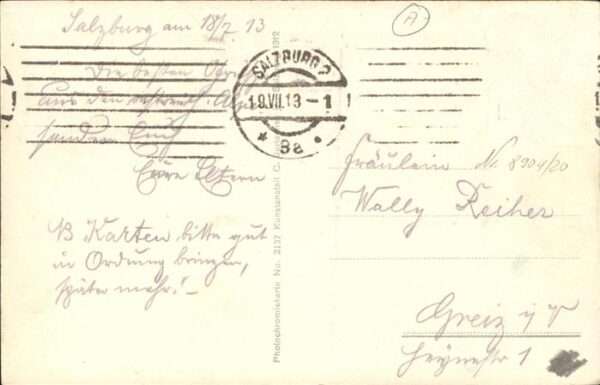 Salzburg am 18/7. 13
Die besten
aus den österreich.
senden Euch
Eure Eltern
13 Karten bitte gut
in Ordnung bringen,
später mehr! –
A
SALZBURG 2
19.VII.13-1
* 8a •
Photochromiekarte No. 2137 Kunstanstalt
1912
Fräulein
Nr. 8904/20
Wally Reiher
Greiz i/V
1